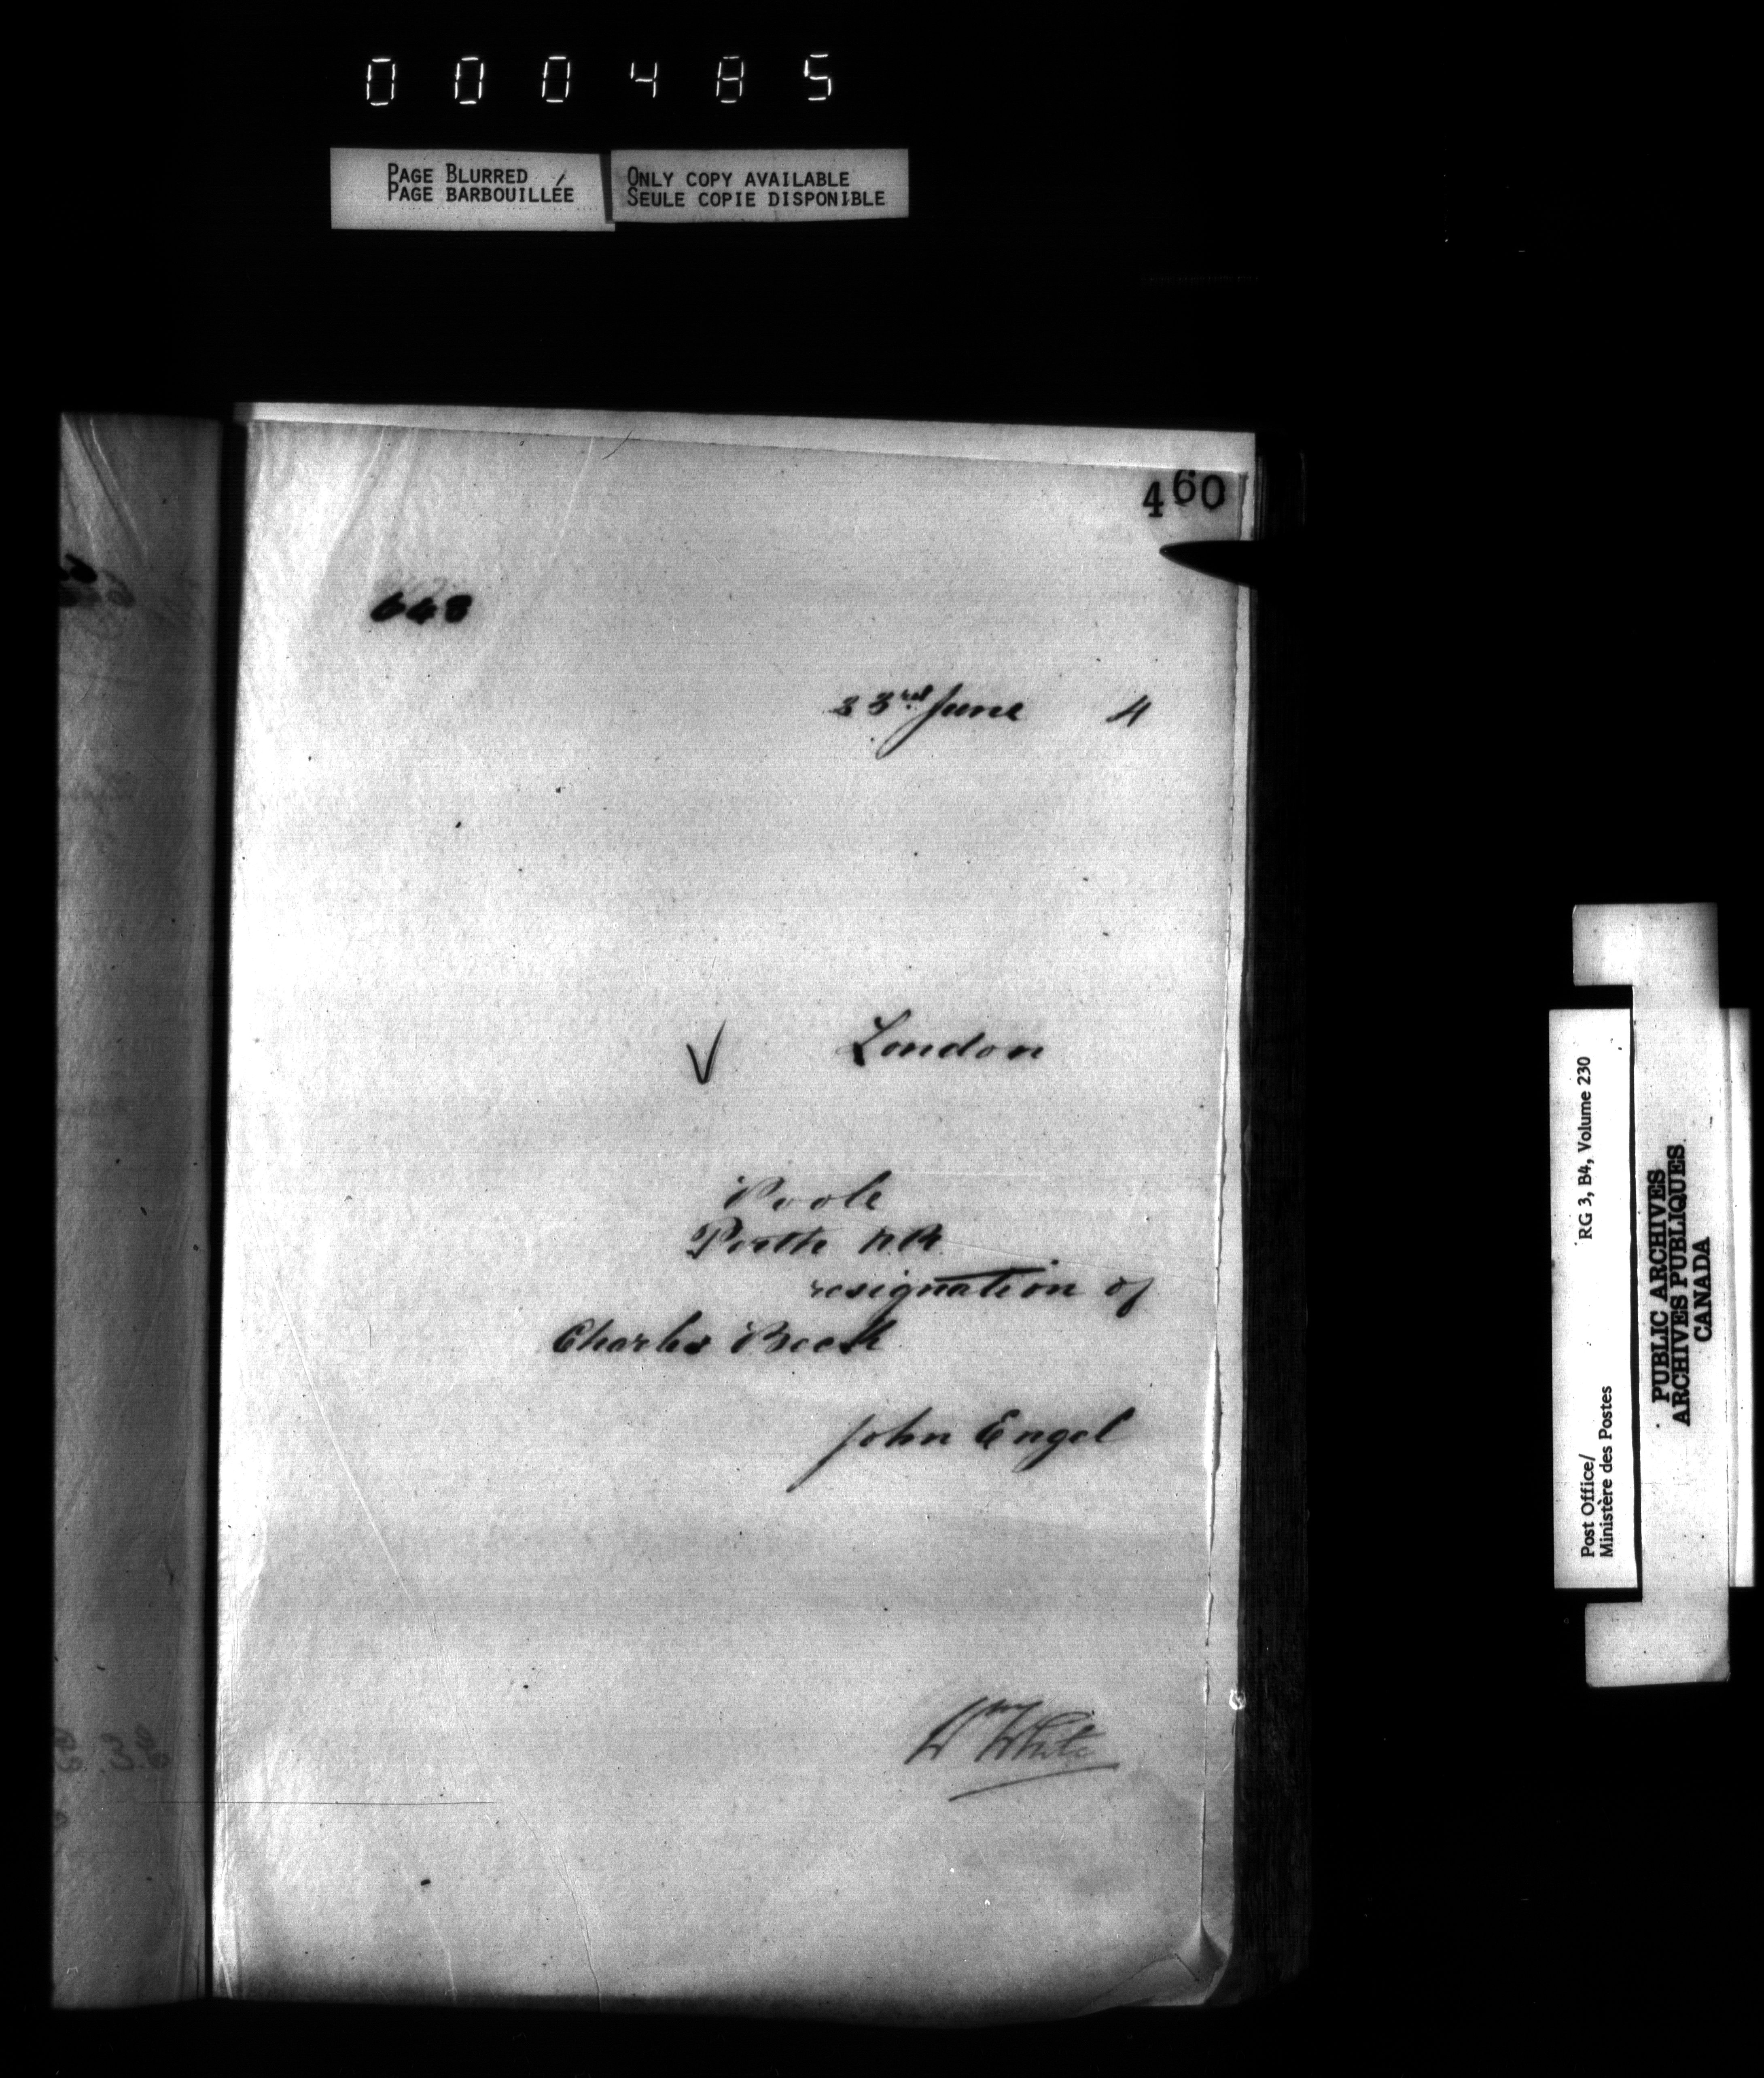 000485
PAGE BLURRED
PAGE BARBOUILLÉE
ONLY COPY AVAILABLE
SEULE COPIE DISPONIBLE
460
648
23rd June 4
London
Poole
Perth N.R.
resignation of
Charles Beck
John Engel
Wm White
RG 3, B4, Volume 230
Post Office/
Ministère des Postes
PUBLIC ARCHIVES
ARCHIVES PUBLIQUES
CANADA